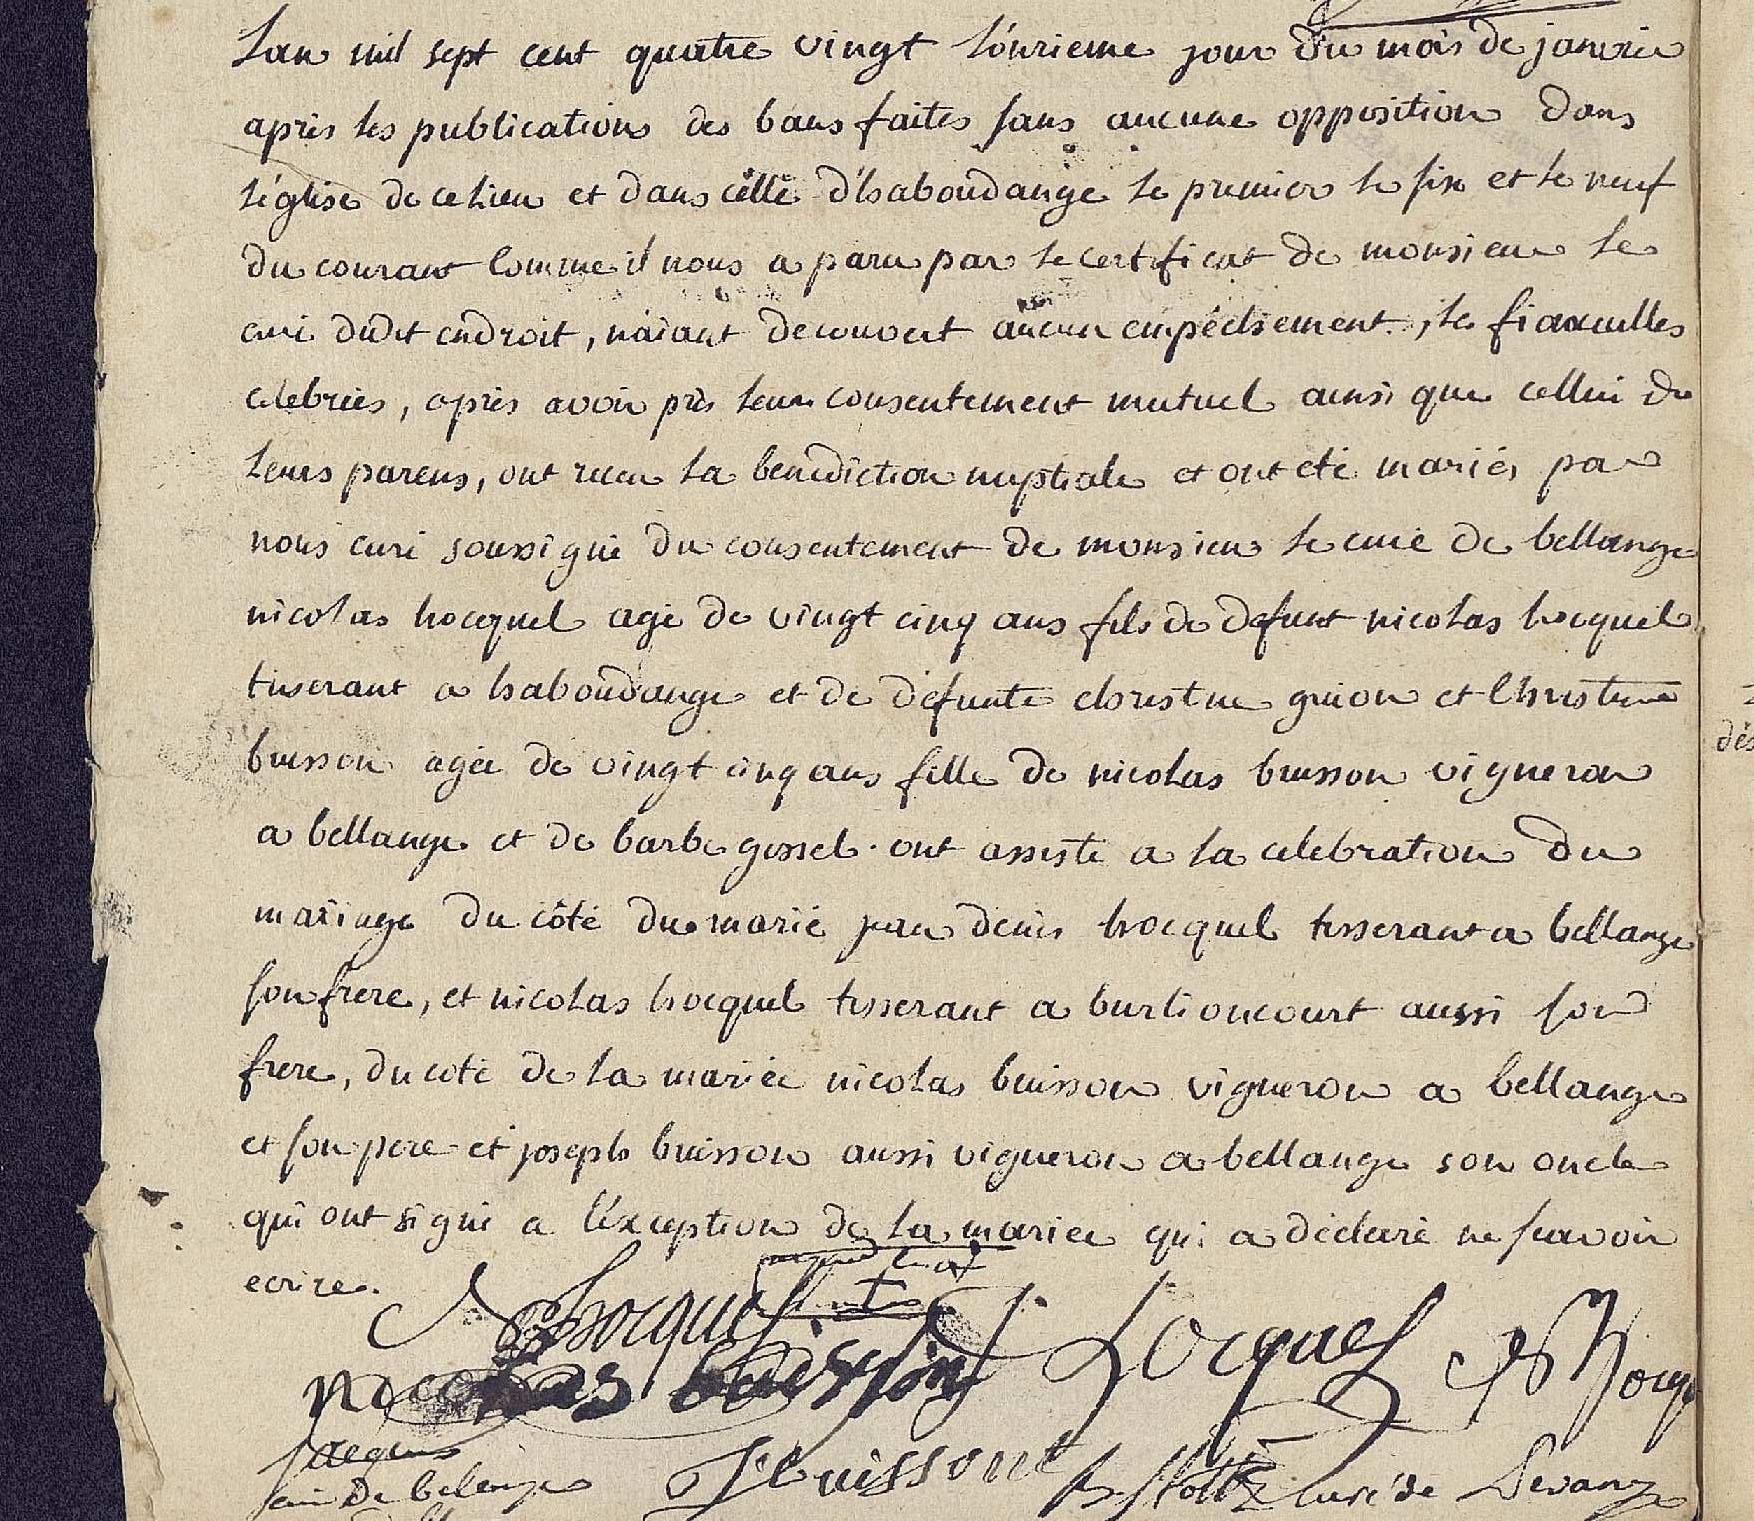 Lan mil sept cent quatre vingt l'onzieme jour du mois de janvier
apres les publications des bans faites sans aucune opposition dans
l'église de ce lieu et dans celle d'haboudange le premier le six et le neuf
du courant comme il nous a paru par le certificat de monsieur le
curé dudit endroit, n'aïant decouvert aucun empéchement, les fiancailles
celebrées, après avoir pris leur consentement mutuel ainsi que cellui de
leurs parens, ont recu la benediction nuptiale et ont eté mariés par
nous curé soussigné du consentement de monsieur le curé de bellange
nicolas hocquel agé de vingt cinq ans fils de defunt nicolas hocquel
tisserant a haboudange et de defunte christine guion et Christine
buisson agée de vingt cinq ans fille de nicolas buisson vigneron
a bellange et de barbe gossel. ont assisté a la celebration du
mariage du côté du marié jean denis hocquel tisserant a bellange
son frere, et nicolas hocquel tisserant a burlioncourt aussi son
frere, du coté de la mariée nicolas buisson vigneron a bellange
et son pere et joseph buisson aussi vigneron a bellange son oncle
qui ont signé a l'éxception de la mariée qui a déclaré ne scavoir
ecrire.
N hocquel
nicolas buisson J D hocquel N hocq
curé de belenge J buissont curé de